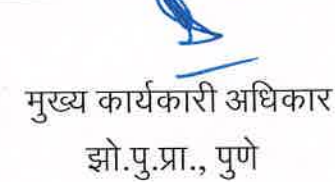 मुख्य कार्यकारी अधिकार
झो.पु.प्रा., पुणे